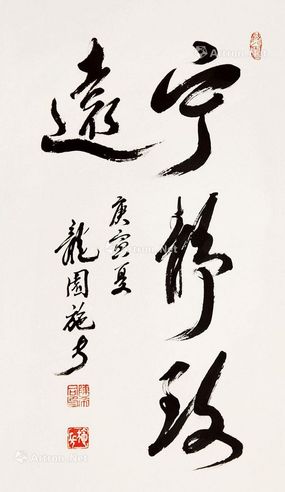 宁静致
遠
庚寅夏
龍園施安
Artron.Net